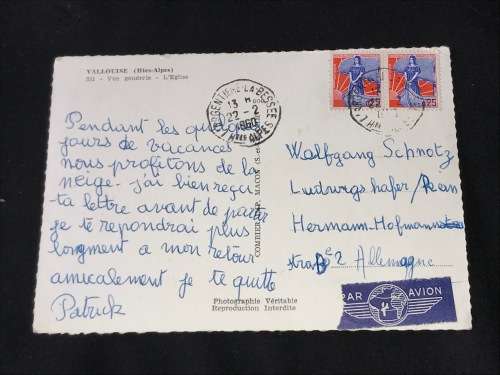 VALLOUISE (Htes-Alpes)
Vue générale - L'Église
Pendant les quelques
jours de vacances
nous profitons de la
neige - j'ai bien reçu
ta lettre avant de partir
je te repondrai plus
longment a mon retour
amicalement je te quitte
Patrick
L'ARGENTIERE LA BESSEE
13 H
22 - 2
1960
HTES ALPES
0,25
COMBIER IMP. MACON
Photographie Véritable
Reproduction Interdite
Wolfgang Schnotz
Ludwigshafen / Rhein
Hermann-Hofmann
strasse 2 Allemagne
PAR AVION